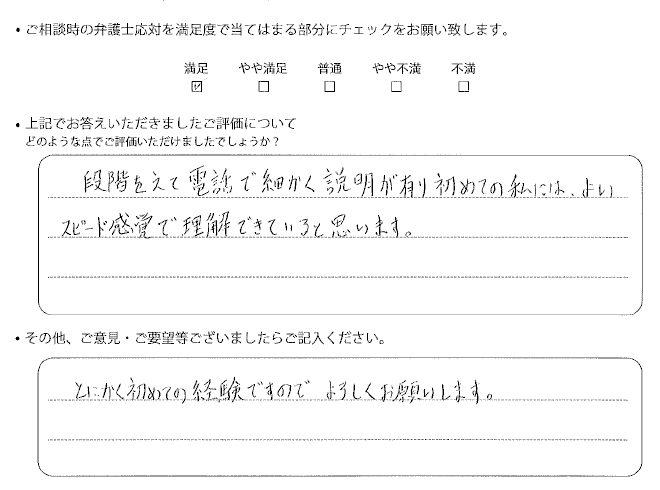 ・ご相談時の弁護士応対を満足度で当てはまる部分にチェックをお願い致します。
満足 やや満足 普通 やや不満 不満
☑ ☐ ☐ ☐ ☐
・上記でお答えいただきましたご評価について
どのような点でご評価いただけましたでしょうか？
段階をえて電話で細かく説明が有り初めての私には、よい
スピード感覚で理解できていると思います。
・その他、ご意見・ご要望等ございましたらご記入ください。
とにかく初めての経験ですので よろしくお願いします。